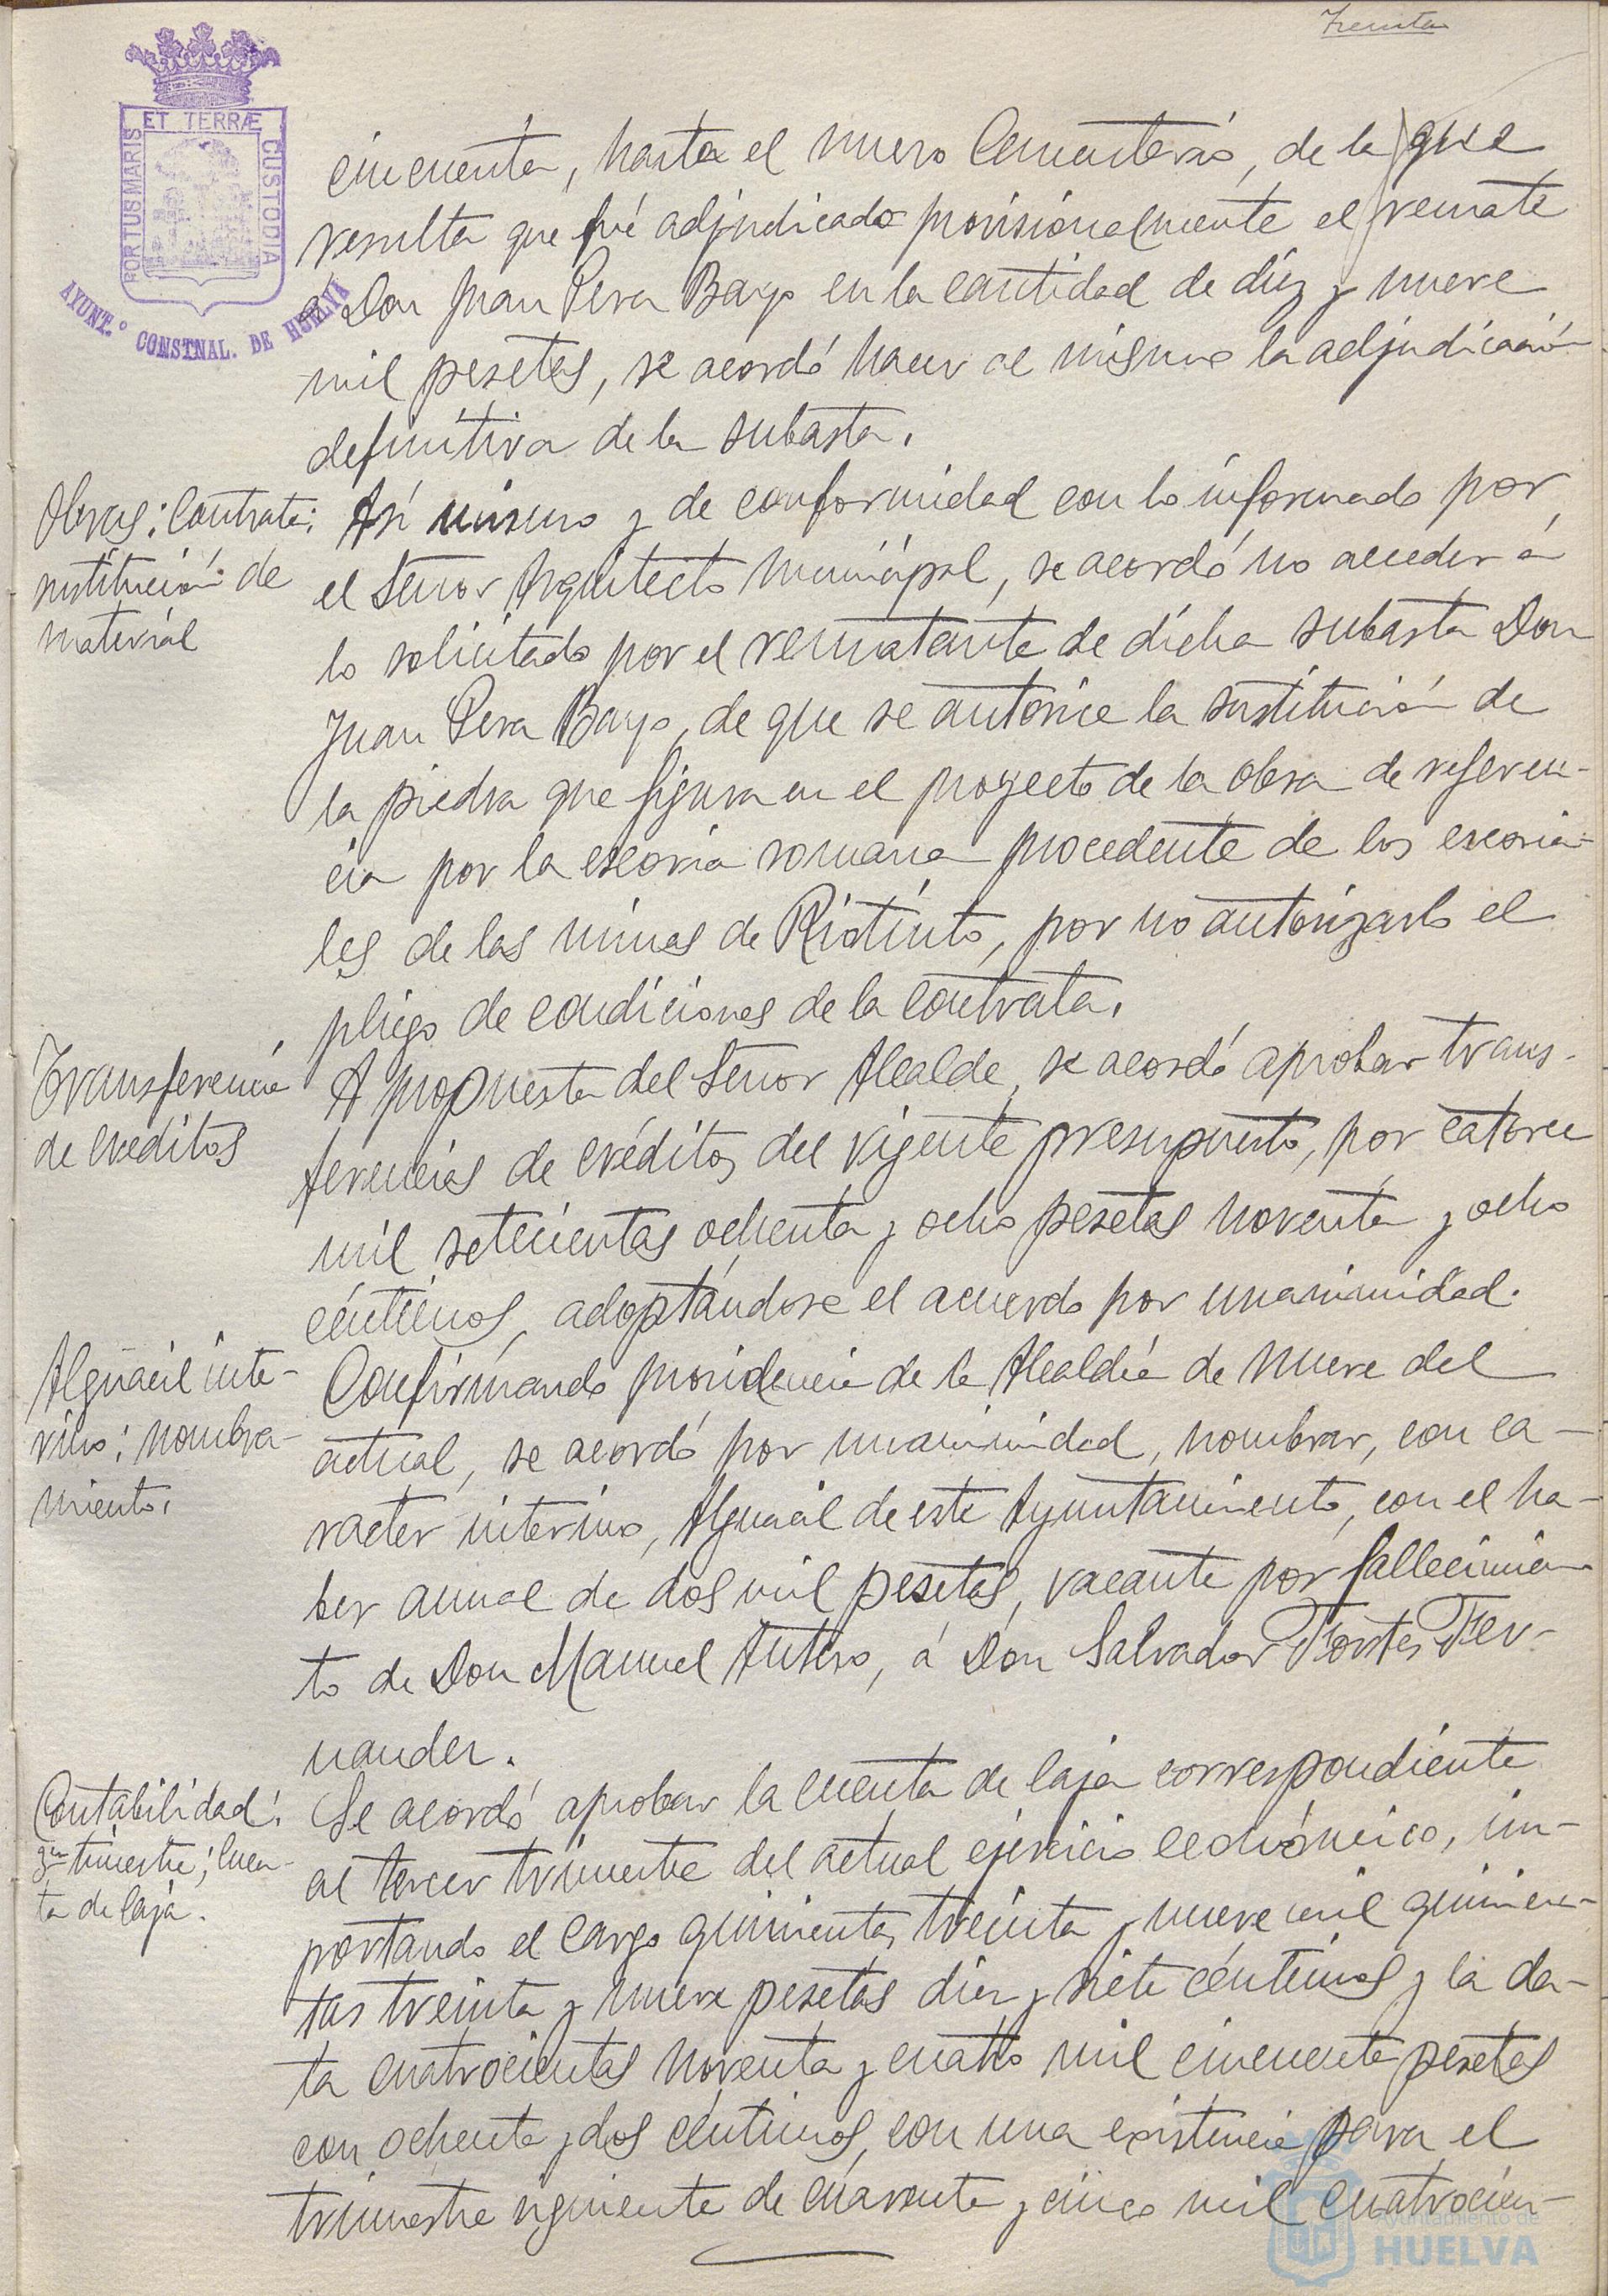 Treinta
ET TERRÆ
PORTUS MARIS
CUSTODIA
AYUNT.º CONSTNAL. DE HUELVA
cincuenta, hasta el nuevo Cementerio, de la que
resulta que fué adjudicado provisionalmente el remate
a Don Juan Pera Bayo en la cantidad de diez y nueve
mil pesetas, se acordó hacer al mismo la adjudicación
definitiva de la subasta.
Obras: Contrata:
sustitución de
material
Así mismo y de conformidad con lo informado por
el Señor Arquitecto Municipal, se acordó no acceder á
lo solicitado por el rematante de dicha subasta Don
Juan Pera Bayo, de que se autorice la sustitución de
la piedra que figura en el proyecto de la obra de referen-
cia por la escoria romana procedente de los escoria-
les de las minas de Riotinto, por no autorizarlo el
pliego de condiciones de la contrata.
Transferencia
de créditos
A propuesta del Señor Alcalde, se acordó aprobar trans-
ferencias de créditos del vigente presupuesto, por catorce
mil setecientas ochenta y ocho pesetas noventa y ocho
céntimos, adoptándose el acuerdo por unanimidad.
Alguacil inte-
rino: nombra-
miento.
Confirmando providencia de la Alcaldía de nueve del
actual, se acordó por unanimidad, nombrar, con ca-
racter interino, Alguacil de este Ayuntamiento, con el ha-
ber anual de dos mil pesetas, vacante por fallecimien-
to de Don Manuel Antero, á Don Salvador Fortes Fer-
nandez.
Contabilidad:
3er trimestre; Cuen-
ta de Caja.
Se acordó aprobar la cuenta de Caja correspondiente
al tercer trimestre del actual ejercicio económico, im-
portando el cargo quinientas treinta y nueve mil quinien-
tas treinta y nueve pesetas diez y siete céntimos y la da-
ta cuatrocientas noventa y cuatro mil cincuenta pesetas
con ochenta y dos céntimos, con una existencia para el
trimestre siguiente de cuarenta y cinco mil cuatrocien-
Ayuntamiento de
HUELVA